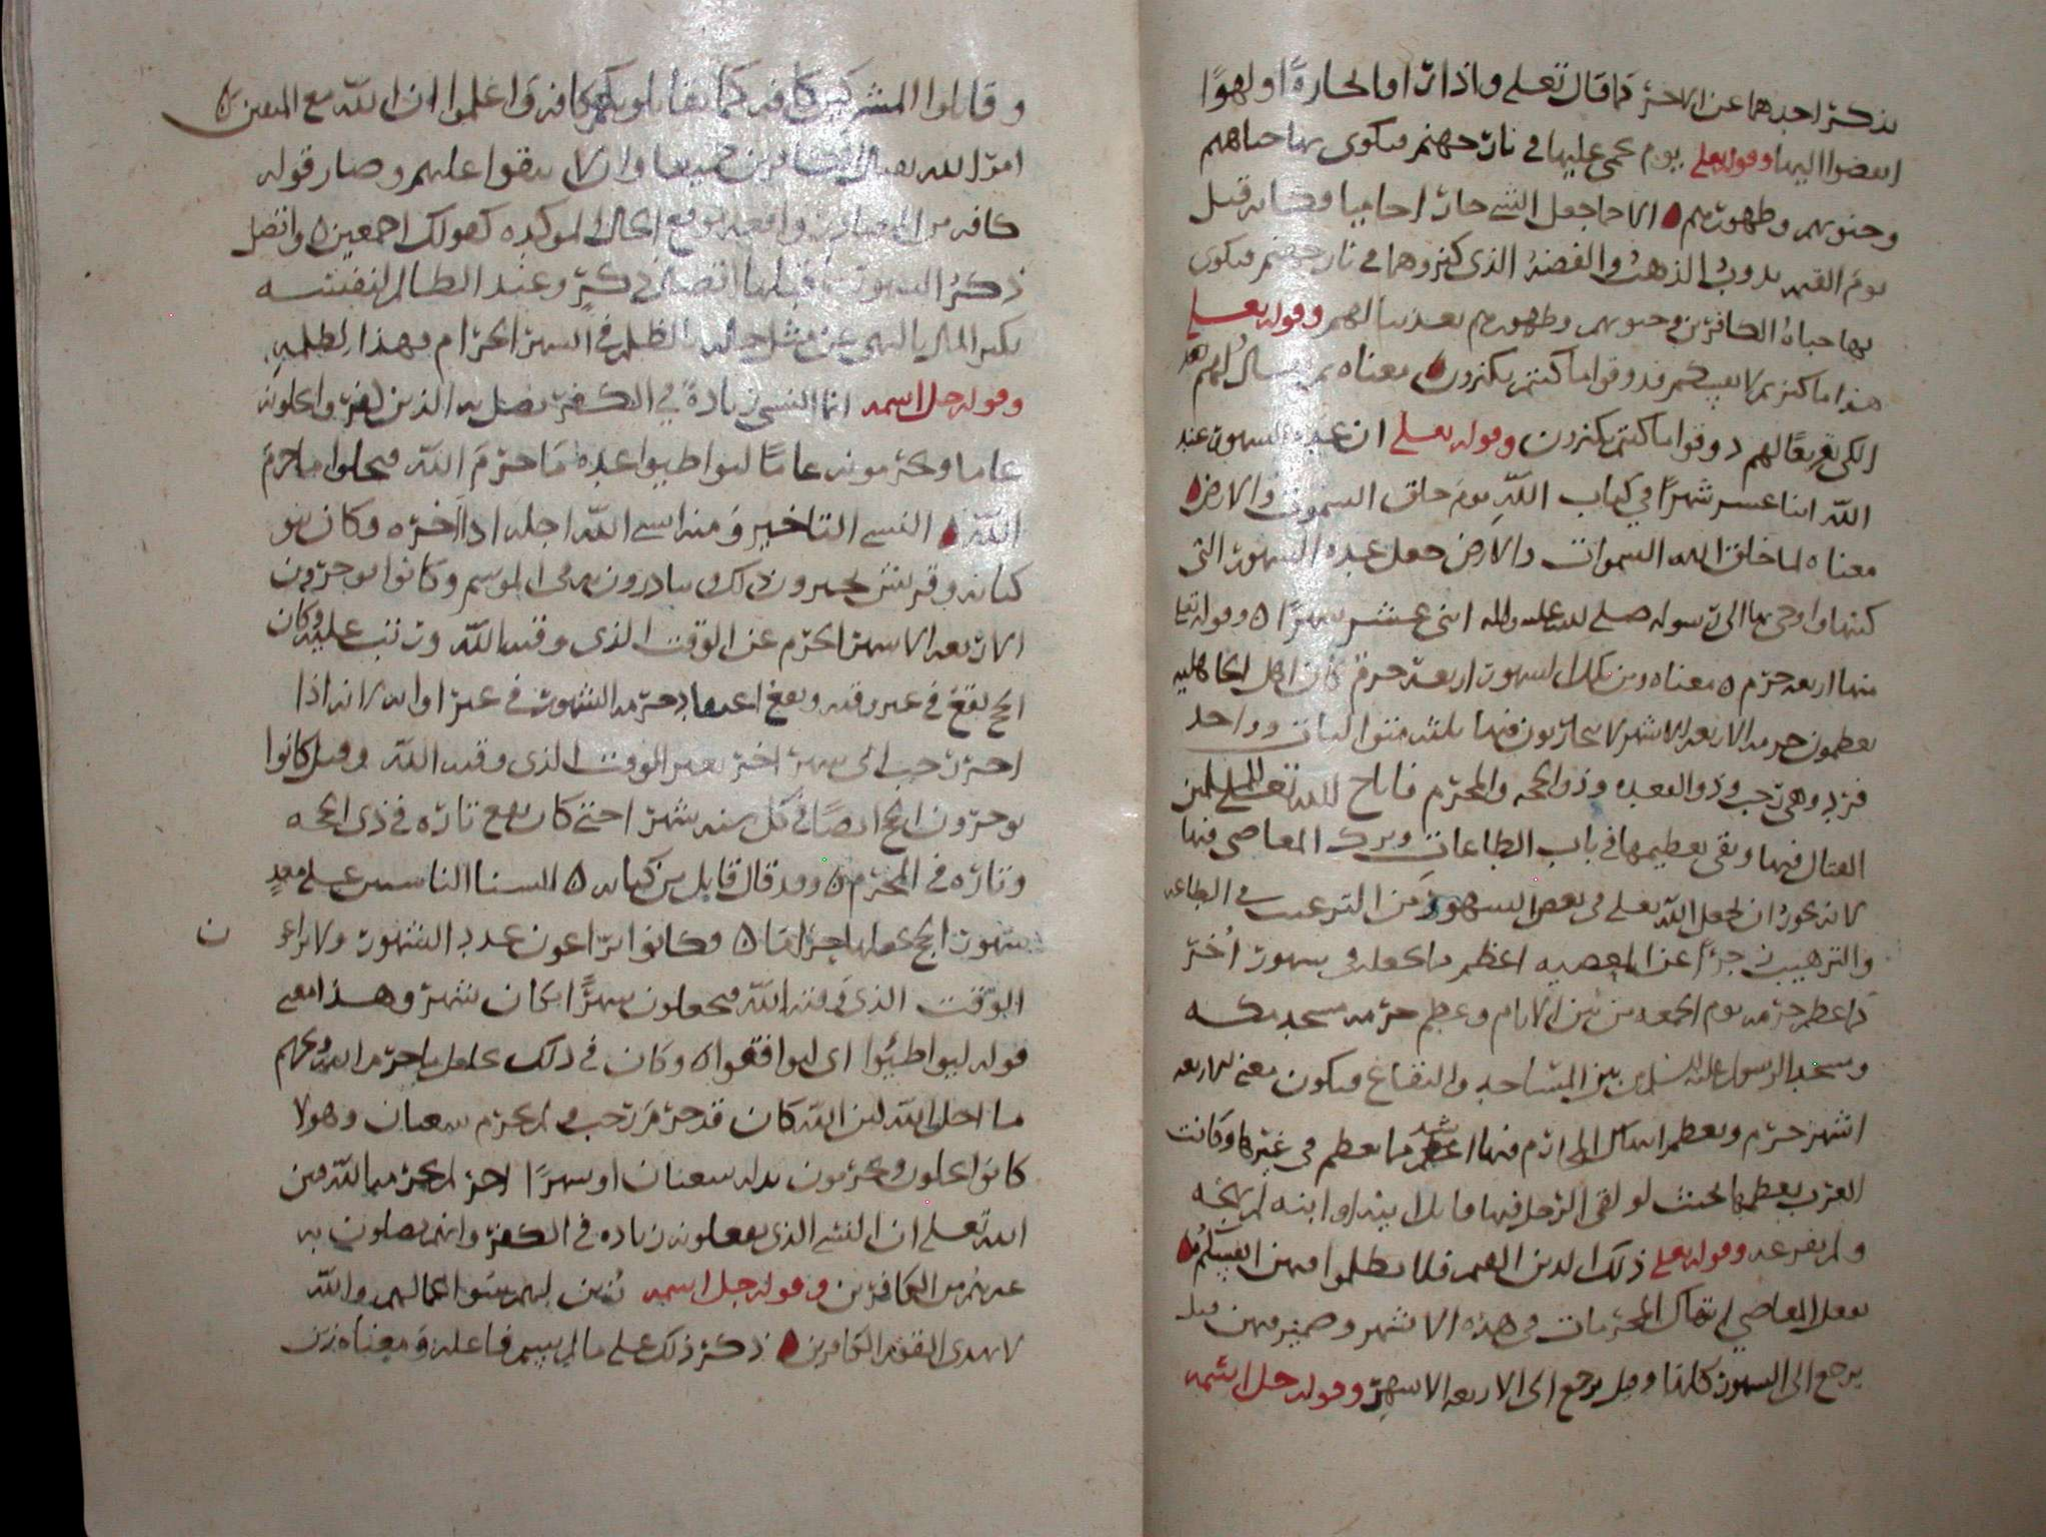 بذكر احدهما عن الاخر كما قال تعلى واذا راوا تجارةً او لهوًا
انفضوا اليها وقوله تعلى يوم يحمى عليها في نار جهنم فتكوى بها جباههم
وجنوبهم وظهورهم الاحما جعل الشي حارا حاميا فكانه قيل
يوم القيمه يذوب الذهبُ والفضهُ الذى كنزوهما في نار جهنم فتكوى
بها جباهُ الكافرين وجنوبهم وظهورهم تعذيبا لهم وقوله تعلى
هذا ما كنزتم لانفسكم فذوقوا ما كنتم تكنزون معناه ثم يقال لهم عند
الكى تقريعًا لهم ذوقوا ما كنتم تكنزون وقوله تعلى ان عده الشهور عند
اللّه اثنا عشر شهرًا في كتاب اللّهِ يومَ خلق السموت والارض
معناه لما خلق الله السموات والارض جعل عده الشهور التى
كتبها واوحى بها الى رسوله صلى الله عليه واله اثنى عشر شهرًا وقوله تعلى
منها اربعه حرم معناه ومن تلك الشهور اربعه حرم كان اهل الجاهليه
يعظمون حرمه الاربعه الاشهر لا يتحاربون فيها ثلثه متواليات وواحد
فرد وهى رجب وذو القعده وذو الحجه والمحرم فاباح الله تعلى للمسلمين
القتال فيها وبقى تعظيمها في باب الطاعات وترك المعاصي فيها
لانه يجوز ان يجعل اللّه تعلى في بعض الشهور من الترغيب في الطاعه
والترهيب زجرًا عن المعصيه اعظم ما يجعله في شهور اُخَر
كما عظم حرمه يوم الجمعه من بين الايام وعظم حرمه مسجد مكه
ومسجد الرسول عليه السلم من بين المساجد والبقاع فيكون معنى الاربعه
اشهر حرم وتعظم انتهاك المحارم فيها اشد مما يعظم في غيرها وكانت
العرب تعظمها بحيث لو لقى الرجل فيها قاتل ابيه او ابنه لم يهجه
ولم يفزعه وقوله تعلى ذلك الدين القيم فلا تظلموا فيهن انفسكم
بفعل المعاصي انتهاك المحرمات في هذه الاشهر وضمير فيهن قيل
يرجع الى الشهور كلها وقيل يرجع الى الاربعه الاشهر وقوله جل اسمه
وقاتلوا المشركين كافه كما يقاتلونكم كافه واعلموا ان اللّه مع المتقين
امر الله بقتال الكافرين جميعا وان لا يبقوا عليهم وصار قوله
كافه من المصادر واقعه موقع الحال الموكده كقولك اجمعين واتصل
ذكرُ الشهور بما قبلها اتصال ذكر وعيد الظالم لنفسه
بكنز المال بالنهى عن مثل حاله بالظلم في الشهر الحرام فهذا لظلمه
وقوله جل اسمه انما النسي زيادةٌ في الكفر يضل به الذين كفروا يحلونه
عاما ويحرمونه عامًا ليواطيوا عدهَ ما حرمَ اللّه فيحلوا ما حرمَ
اللّه النسى التاخير ومنه انسى اللّه اجله اذا اخره وكان بنو
كنانه وقريش يجيرون ذلك ينادرون به في الموسم وكانوا يوخرون
الاربعه الاشهر الحرم عن الوقت الذى وقته اللّه ورتب عليه وكان
الحج يقعُ في غير وقته ويقع اعتقاد حرمه الشهور في غير اوانه لانه اذا
اخر رجب الى شهر اخر تغير الوقت الذى وقته اللّه وقيل كانوا
يوخرون الحج ايضًا في كل سنه شهرا حتى كان يقع تاره في ذى الحجه
وتاره في المحرم وقد قال قايل من كنانه السنا الناسين على معدٍ
شهور الحج نجعلها حراما وكانوا يراعون عدد الشهور ولا يراعون
الوقت الذى وقته اللّه فيجعلون شهرًا مكان شهر وهذا معنى
قوله ليواطيُوا اى ليوافقوا وكان في ذلك تحليل ما حرم الله وتحريم
ما احل اللّه لان اللّه كان قد حرمَ رجب ولم يحرم شعبان وهولا
كانوا يحلون ويحرمون بدله شعبان او شهرًا اخر لم يحرمه اللّه فبين
الله تعلى ان النسى الذى يفعلونه زياده في الكفر وانهم يضلون به
غيرهم من الكافرين وقوله جل اسمه زُين لهم سُو اعمالهم واللّه
لا يهدى القوم الكافرين ذكر ذلك على ما لم يسم فاعله ومعناه زين